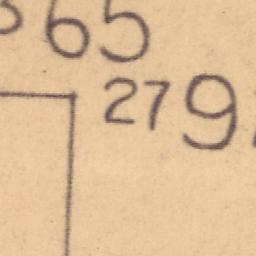 65
27 9